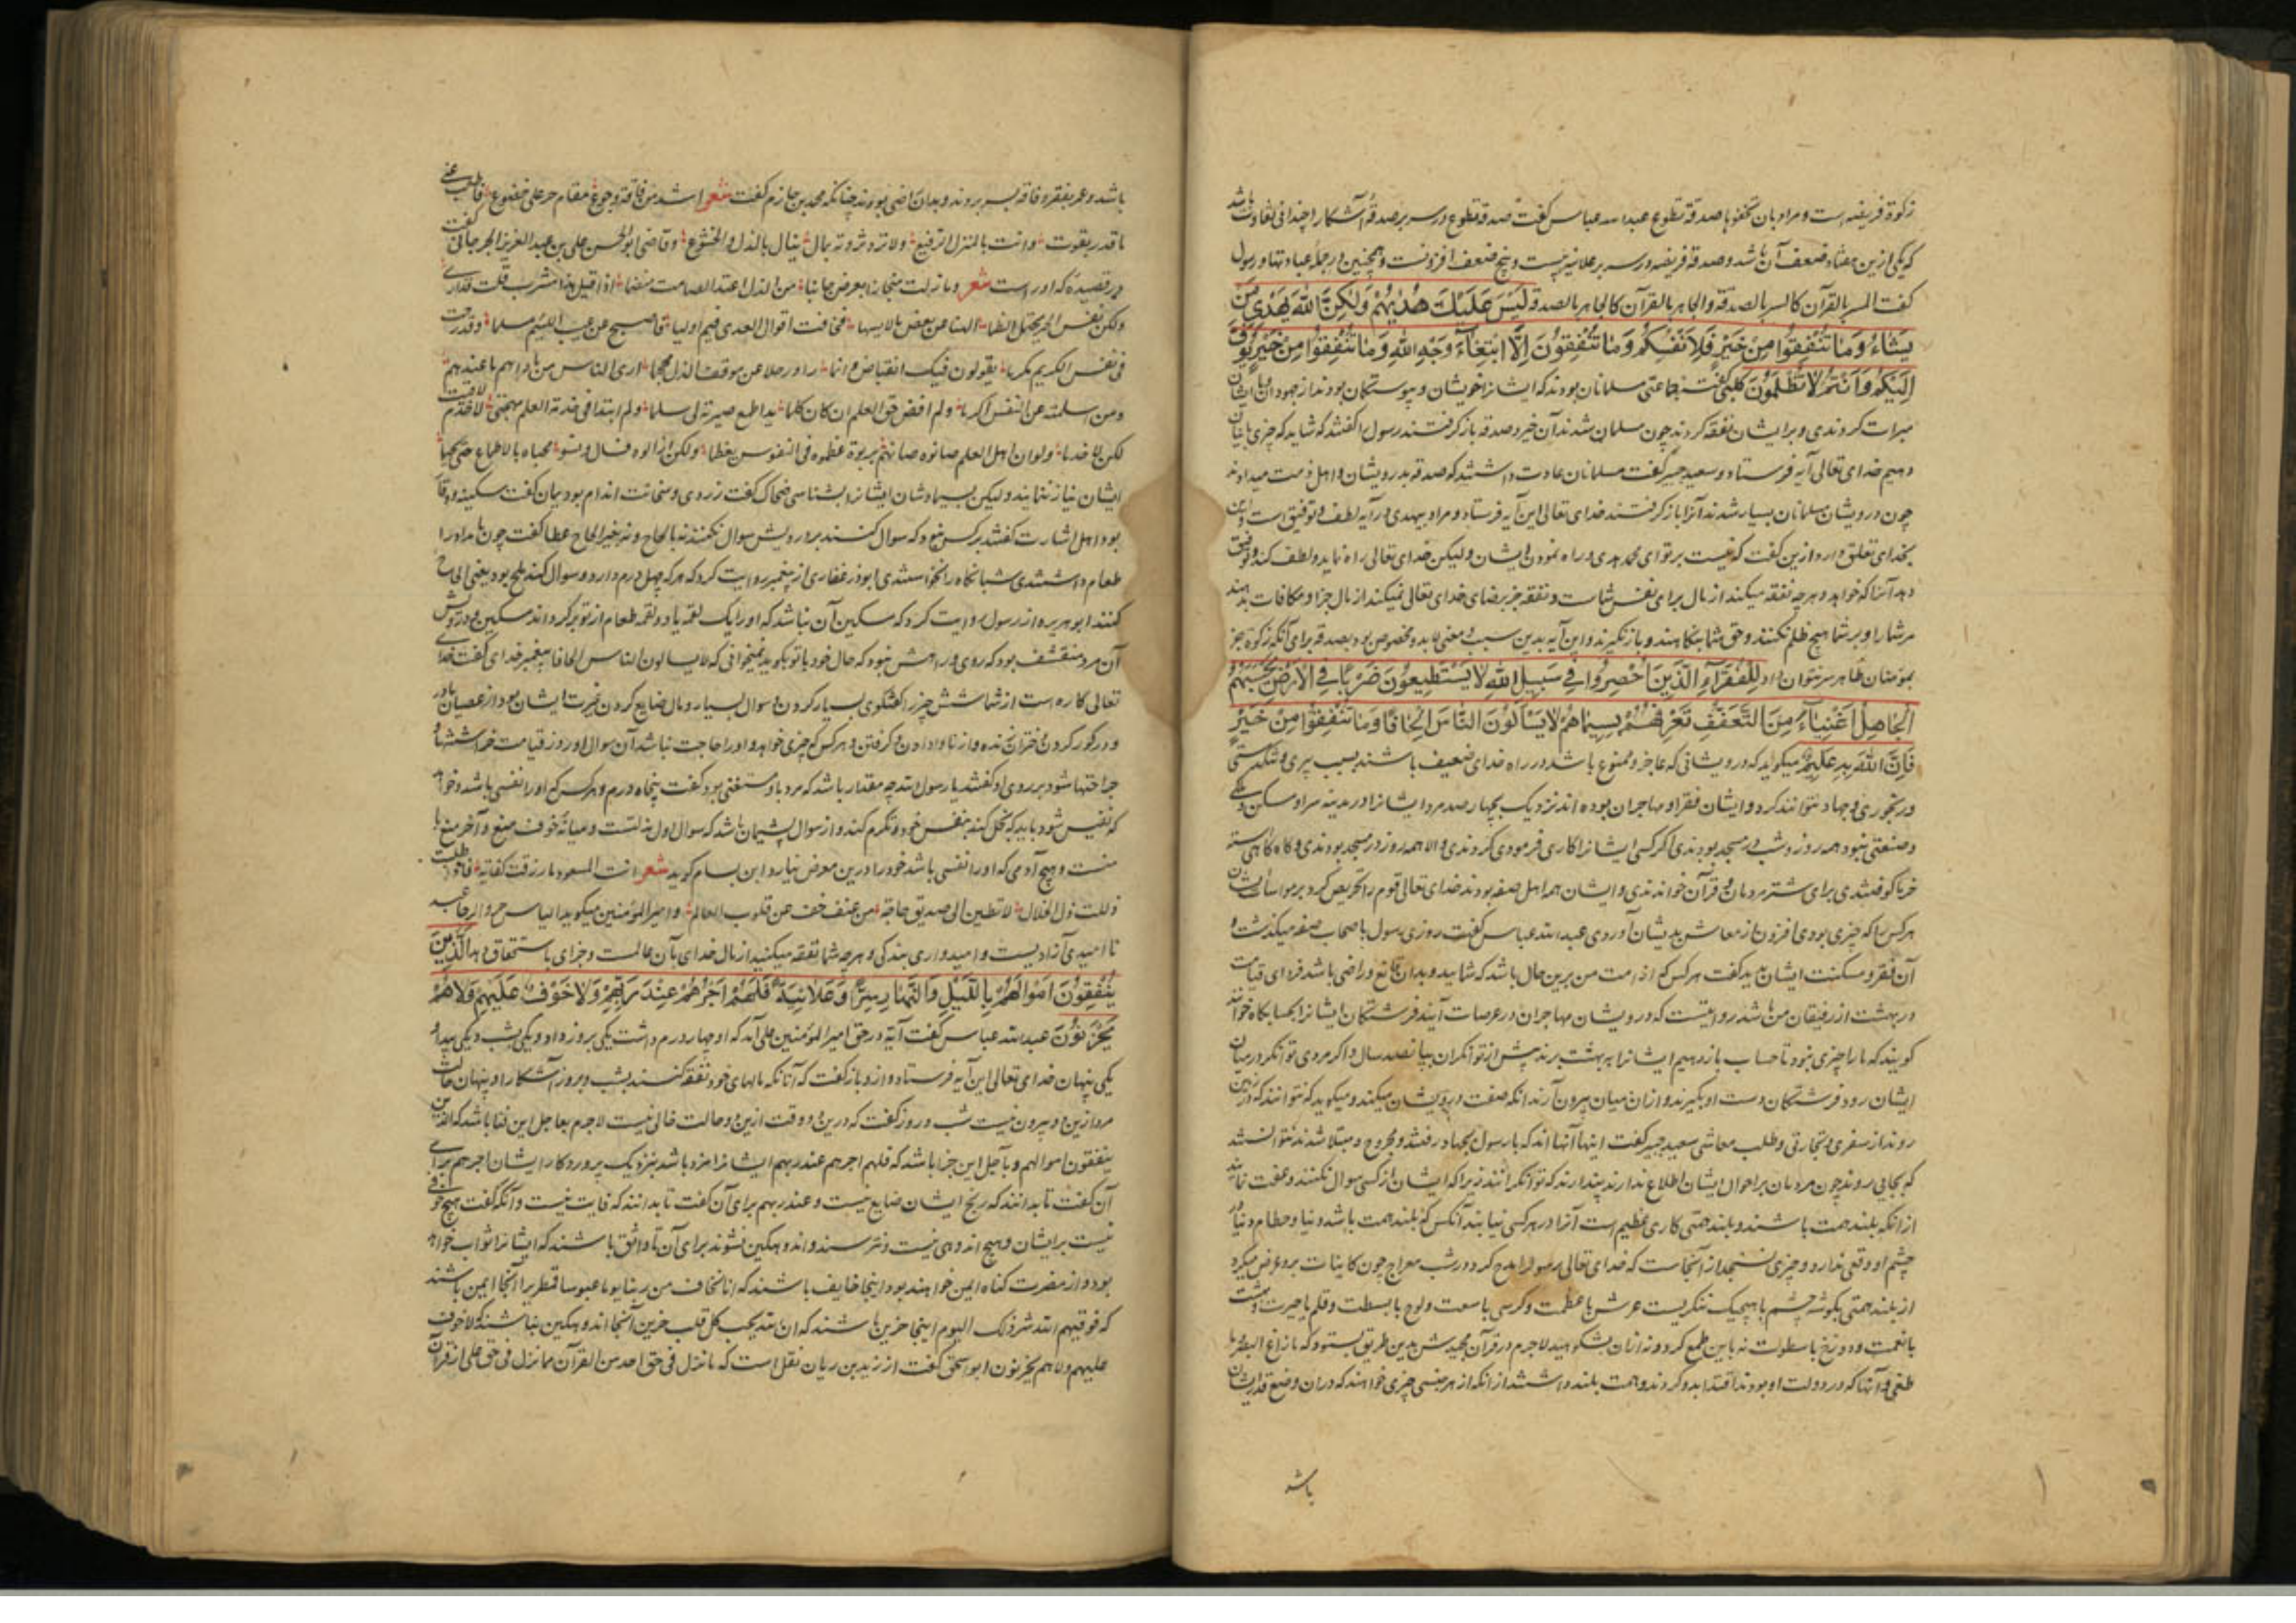 زکوة فریضه است و مراد بان تخفوها صدقه تطوع عبدالله عباس گفت صدقه تطوع در سر بر صدقه آشکارا چندانی تفاوت باشد
که یکی ازین هفتاد ضعف آن باشد و صدقه فریضه در سر بر علانیه بیست و پنج ضعف افزونست و همچنین در جمله عبادتها و رسول
گفت المسر بالقرآن کالمسر بالصدقة والجاهر بالقرآن کالجاهر بالصدقة لَيْسَ عَلَيْكَ هُدٰيهُمْ وَلٰكِنَّ اللّٰهَ يَهْدِي مَنْ
يَشَاءُ وَمَا تُنْفِقُوا مِنْ خَيْرٍ فَلِاَنْفُسِكُمْ وَمَا تُنْفِقُونَ اِلَّا ابْتِغَاءَ وَجْهِ اللّٰهِ وَمَا تُنْفِقُوا مِنْ خَيْرٍ يُوَفَّ
اِلَيْكُمْ وَاَنْتُمْ لَا تُظْلَمُونَ کلبی گفت جماعتی مسلمانان بودند که ایشانرا خویشان و پیوستگان بودند از جهودان و با ایشان
مبرات کردندی و بر ایشان نفقه کردند چون مسلمان شدند آن خیر و صدقه باز گرفتند رسول را گفتند که شاید که چیزی بایشان
دهیم خدای تعالی آیه فرستاد و سعید جبیر گفت مسلمانان عادت داشتند که صدقه بدرویشان و اهل ذمت میدادند
چون درویشان مسلمانان بسیار شدند آنرا باز گرفتند خدای تعالی این آیه فرستاد و مراد بیهدی در آیه لطف و توفیق است و این
بخدای تعلق دارد ازین گفت که نیست بر تو ای محمد هدی و راه نمودن ایشان ولیکن خدای تعالی راه نماید و لطف کند و توفیق
دهد آنرا که خواهد و هرچه نفقه میکنند از مال برای نفس شماست و نفقه جز برضای خدای تعالی نمیکنند از مال جزا و مکافات بدهند
مر شما را و بر شما هیچ ظلم نکنند و حق شما بنکاهند و باز نگیرند و این آیه بدین سبب و معنی لابد مخصوص بود بصدقه برای آنکه زکوة جز
بمؤمنان ظاهر ستر نتوان داد لِلْفُقَرَاءِ الَّذِينَ اُحْصِرُوا فِي سَبِيلِ اللّٰهِ لَا يَسْتَطِيعُونَ ضَرْبًا فِي الْاَرْضِ يَحْسَبُهُمُ
الْجَاهِلُ اَغْنِيَاءَ مِنَ التَّعَفُّفِ تَعْرِفُهُمْ بِسِيمَاهُمْ لَا يَسْاَلُونَ النَّاسَ اِلْحَافًا وَمَا تُنْفِقُوا مِنْ خَيْرٍ
فَاِنَّ اللّٰهَ بِهِ عَلِيمٌ میگوید که درویشانی که عاجز و ممنوع باشند در راه خدای ضعیف باشند بسبب پیری و تنگدستی
و رنجوری و جهاد نتوانند کرد و ایشان فقرا و مهاجران بوده اند نزدیک بچهار صد مرد ایشانرا در مدینه سرا و مسکن و ملکی
و صنعتی نبود همه روز و شب در مسجد بودندی اگر کسی ایشانرا کاری فرمودی کردندی و الا همه روز در مسجد بودندی و گاه گاهی استه
خرما کوفتندی برای شتر مردمان و قرآن خواندندی و ایشان همه اهل صفه بودند خدای تعالی قوم را تحریص کرد بر مواسات ایشان
هر کس را که چیزی بودی افزون از معاش بدیشان آوردی عبدالله عباس گفت روزی رسول باصحاب صفه میگذشت و
آن فقر و مسکنت ایشان بدید گفت هر کس که از امت من برین حال باشد که شمایید و بدان قانع و راضی باشد فردای قیامت
در بهشت از رفیقان من باشد روایتست که درویشان مهاجران در عرصات آیند فرشتگان ایشانرا بحسابگاه خوانند
گویند که ما را چیزی نبود تا حساب باز دهیم ایشانرا به بهشت برند پیش از توانگران بپانصد سال و اگر مردی توانگر در میان
ایشان رود فرشتگان دست او بگیرند و از آن میان بیرون آرند آنکه صفت درویشان میکند و میگوید که نتوانند که در زمین
روند از سفری و تجارتی و طلب معاشی سعید جبیر گفت اینها آنها اند که با رسول بجهاد رفتند و مجروح و مبتلا شدند نتوانستند
که بجایی روند چون مردمان بر احوال ایشان اطلاع ندارند پندارند که توانگرانند زیرا که ایشان از کسی سوال نکنند و عفت نمایند
از آنکه بلند همت باشند و بلند همتی کاری عظیم است آنرا در هر کسی نیابند آنکس که بلند همت باشد دنیا و حطام دنیا در
چشم او وقعی ندارد و چیزی نسنجد از آنجاست که خدای تعالی رسول را مدح کرد در شب معراج چون کاینات بر وی عرض میکرد
از بلند همتی بگوشه چشم با هیچیک ننگریست عرش با عظمت و کرسی با سعت و لوح با بسطت و قلم با حیرت و بهشت
با نعمت و دوزخ با سطوت نه باین طمع کرد و نه از آن بشکوهید لاجرم در قرآن مجیدش بدین طریق بستود که ما زاغ البصر و ما
طغی و آنها که در دولت او بودند اقتدا بدو کردند و همت بلند داشتند از آنکه از هر خسی چیزی خواهند که در آن وضع قدر ایشان
باشد
باشد و عمر بفقر و فاقه بسر بردند و بدان راضی بودند چنانکه محمد بن حازم گفت شعر اشد من فاقة و جوع مقام حر علی خضوع فاطلب غنی
ما قدر بقوت وانت بالمنزل الرفیع ولا ترد ثروة بمال ینال بالذل والخشوع و قاضی ابو الحسن علی بن عبدالعزیز الجرجانی گفت
در قصیده که اوراست شعر وما زلت منحازا بعرضی جانبا من الذل اعتد الصیانة مغنما اذا قیل هذا مشرب قلت قد اری
ولکن نفس الحر تحتمل الظما
فی نفس الکریم مکرما یقولون فیک انقباض وانما راوا رجلا عن موقف الذل محجما اری الناس من داناهم هان عندهم
ولم اقض حق العلم ان کان کلما بدا طمع صیرته لی سلما ولم ابتذل فی خدمة العلم مهجتی لاخدم من لاقیت
لکن لاخدما ولو ان اهل العلم صانوه صانهم ولو عظموه فی النفوس لعظما ولکن اذالوه فهان ودنسوا محیاه بالاطماع حتی
ایشان نیاز ننمایند ولیکن بسیماشان ایشانرا بشناسی ضحاک گفت زردی و سخافت اندام بود یمان گفت سکینه و وقار
بود اهل اشارت گفتند بر کس نبود که سوال کنند بر درویش سوال نکنند نه بالحاح و نه بغیر الحاح عطا گفت چون بامداد را
طعام داشتندی شبانگاه را نخواستندی ابوذر غفاری از پیغمبر روایت کرد که هر که چهل درم دارد و سوال کند ملح بود یعنی الحاح
کنند ابو هریره از رسول روایت کرد که مسکین آن نباشد که او را یک لقمه یا دو لقمه طعام از تو بر گرداند مسکین و درویش
آن مرد متقشف بود که روی و راهش نبود که حال خود با تو بگوید نمیخوانی که لا یسالون الناس الحافا پیغمبر خدای گفت خدای
تعالی کاره است از شما شش چیز را گفتگوی بسیار کردن و سوال بسیار و مال ضایع کردن و غیرت ایشان بود از عصیان مادر
و در گور کردن دختران زنده و از نا دادن و گرفتن و هر کس که چیزی خواهد و او را حاجت نباشد آن سوال او روز قیامت خراشتها و
جراحتها شود بر روی او گفتند یا رسول الله چه مقدار باشد که مرد باو مستغنی بود گفت پنجاه درم و هر کس که او را نفسی باشد و خواهد
که نفیس شود باید که بخل کند بنفس خود و تکرم کند و از سوال پشیمان باشد که سوال اول مذلتست و میانه خوف منع و آخر منع یا
منت و هیچ آدمی که او را نفسی باشد خود را درین معرض نیارد ابن بسام گوید شعر انت المسعود ما رزقت کفایة فاذا طلبت
ذللت ذل لا تطین الی صدیق حاجة من عفف خف عن قلوب العالم و امیر المؤمنین میگوید الیاس حر والرجا عبد
نا امیدی آزادیست و امیدواری بندگی و هرچه شما نفقه میکنید از مال خدای بآن عالمست و جزای باستحقاق دهد اَلَّذِينَ
يُنْفِقُونَ اَمْوَالَهُمْ بِاللَّيْلِ وَالنَّهَارِ سِرًّا وَعَلَانِيَةً فَلَهُمْ اَجْرُهُمْ عِنْدَ رَبِّهِمْ وَلَا خَوْفٌ عَلَيْهِمْ وَلَا هُمْ
يَحْزَنُونَ عبدالله عباس گفت آیه در حق امیر المؤمنین علی آمد که او چهار درم داشت یکی بروز داد و یکی بشب و یکی پیدا و
یکی پنهان خدای تعالی این آیه فرستاد و ازو باز گفت که آنانکه مالهای خود نفقه کنند بشب و بروز آشکارا و پنهان حالت
مرد ازین دو بیرون نیست شب و روز گفت که درین دو وقت ازین دو حالت خالی نیست لاجرم بعاجل این ثنا باشد که الذین
ینفقون اموالهم و بآجل این جزا باشد که فلهم اجرهم عند ربهم ایشانرا مزد باشد بنزدیک پروردگار ایشان اجرهم برای
آن گفت تا بدانند که رنج ایشان ضایع نیست و عند ربهم برای آن گفت تا بدانند که فایت نیست و آنکه گفت هیچ خوفی
نیست بر ایشان و هیچ اندوهی نیست و نترسند و اندوهگین نشوند برای آن تا واثق باشند که ایشانرا ثواب خواهد
بود و از مضرت گناه ایمن خواهند بود اینجا خایف باشند که انا نخاف من ربنا یوما عبوسا قمطریرا آنجا ایمن باشند
که فوقیهم الله شر ذلک الیوم اینجا حزین باشند که ان الله یحب کل قلب حزین آنجا اندوهگین نباشند که لا خوف
علیهم ولا هم یحزنون ابو اسحق گفت از زید بن ریان نقل است که ما نزل فی حق احد من القرآن ما نزل فی حق علی از قرآن